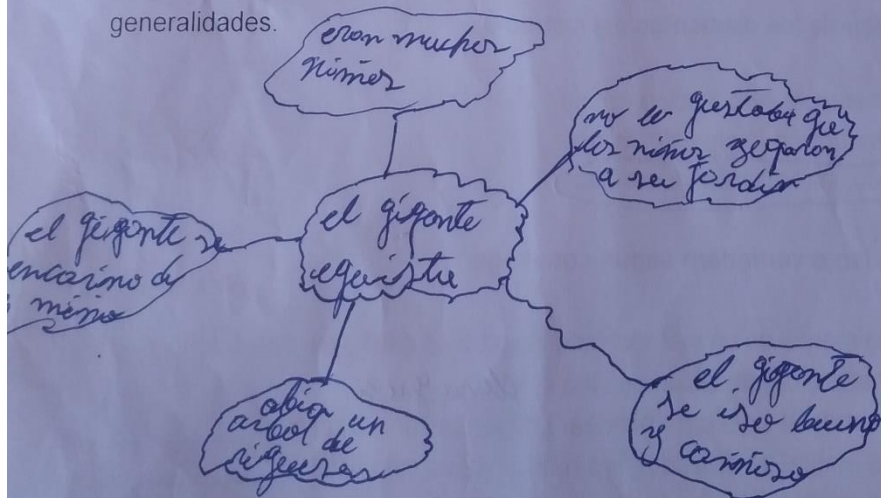 generalidades.
eran muchos
niños
no le gustaba que
los niños
a su jardin
el gigante
egoista
el gigante se
encarino de
niño
abia un
arbol de
el gigante
se iso bueno
y cariñoso